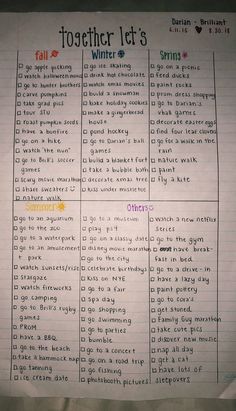 together let's
Darian - Brilliant
6.11.15 ♥ 8.30.15
Fall
□ go apple picking
□ watch halloween movies
□ go to hunter brothers
□ carve pumpkins
□ take grad pics
□ tour SFU
□ roast pumpkin seeds
□ have a bonfire
□ go on a hike
□ watch "the nun"
□ go to Brill's soccer
games
□ scary movie marathon
□ share sweaters ☺
□ nature walk
Winter
□ go ice skating
□ drink hot chocolate
□ watch xmas movies
□ build a snowman
□ bake holiday cookies
□ make a gingerbread
house
□ pond hockey
□ go to Darian's ball
games
□ build a blanket fort
□ take a bubble bath
□ decorate xmas tree
□ kiss under mistletoe
Spring
□ go on a picnic
□ feed ducks
□ paint rocks
□ prom dress shopping
□ go to Darian's
vball games
□ decorate easter eggs
□ find four leaf clovers
□ go for a walk in the
rain
□ nature walk
□ paint
□ fly a kite
Summer
□ go to an aquarium
□ go to the zoo
□ go to a waterpark
□ go to an amusement
park
□ watch sunsets/rise
□ stargaze
□ watch fireworks
□ go camping
□ go to Brill's rugby
games
□ PROM
□ have a BBQ
□ go to the beach
□ take a hammock nap
□ go tanning
□ ice cream date
Others
□ go to a museum
□ play
□ go on a classy date
□ disney movie marathon
□ go to the city
□ celebrate birthdays
□ kiss on NYE
□ go to a fair
□ spa day
□ go shopping
□ go swimming
□ go to parties
□ bumble
□ go to a concert
□ go on a road trip
□ go fishing
□ photobooth pictures
□ watch a new netflix
series
□ go to the gym
□ have break-
fast in bed
□ go to a drive-in
□ have a lazy day
□ paint pottery
□ go to Cora's
□ get stoned
□ Family Guy marathon
□ take cute pics
□ discover new music
□ nap all day
□ get a cat
□ have lots of
sleepovers